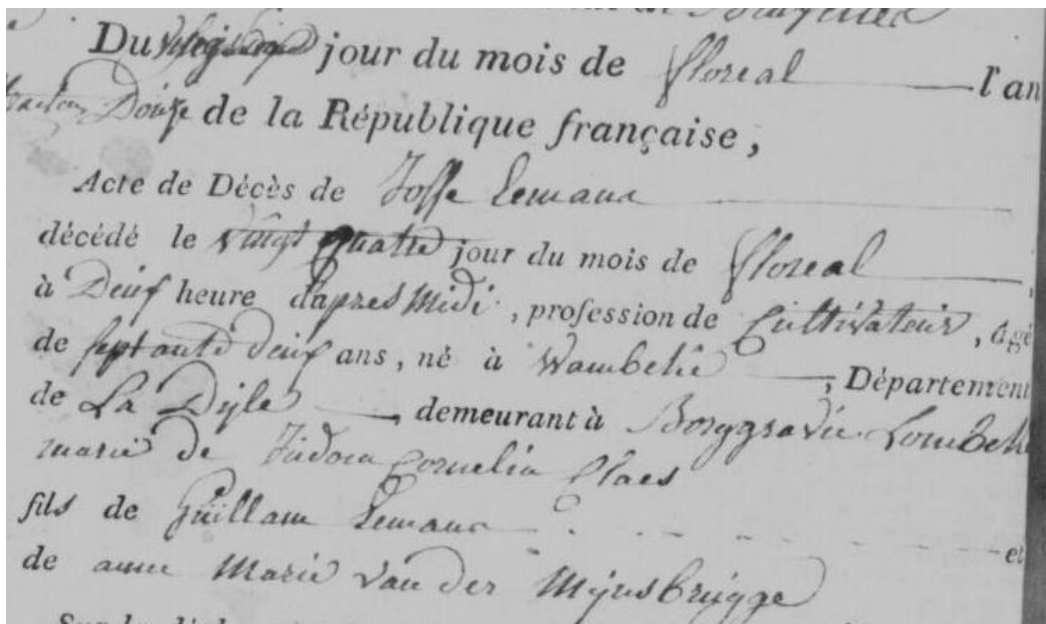 Du jour du mois de floreal l'an
Douze de la République française,
Acte de Décès de Josse Lemans
décédé le vingt quatre jour du mois de floreal,
à Deux heure d'apres Midi, profession de Cultivateur, âgé
de septante deux ans, né à Wambeke, Département
de La Dijle, demeurant à Borggravie Lombeke
marié de Judoca Cornelia Claes
fils de Guillam Lemans et
de anne Marie van der Mijnsbrugge